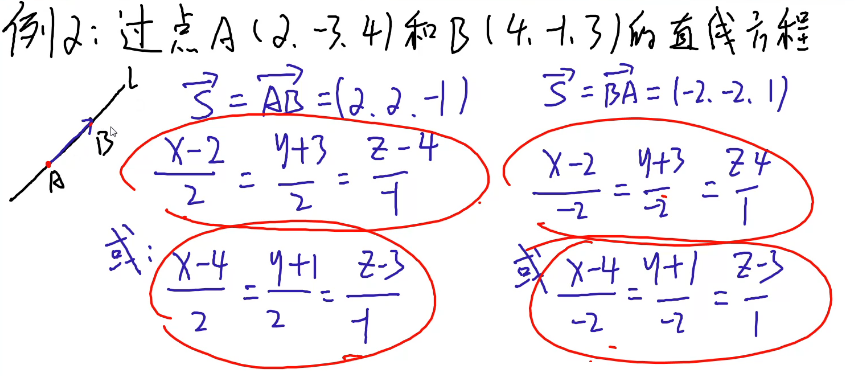 例2：过点A(2.-3.4)和B(4.-1.3)的直线方程
L
B
A
S = AB = (2.2.-1)
x-2/2 = y+3/2 = z-4/-1
或: x-4/2 = y+1/2 = z-3/-1
S = BA = (-2.-2.1)
x-2/-2 = y+3/-2 = z-4/1
或 x-4/-2 = y+1/-2 = z-3/1